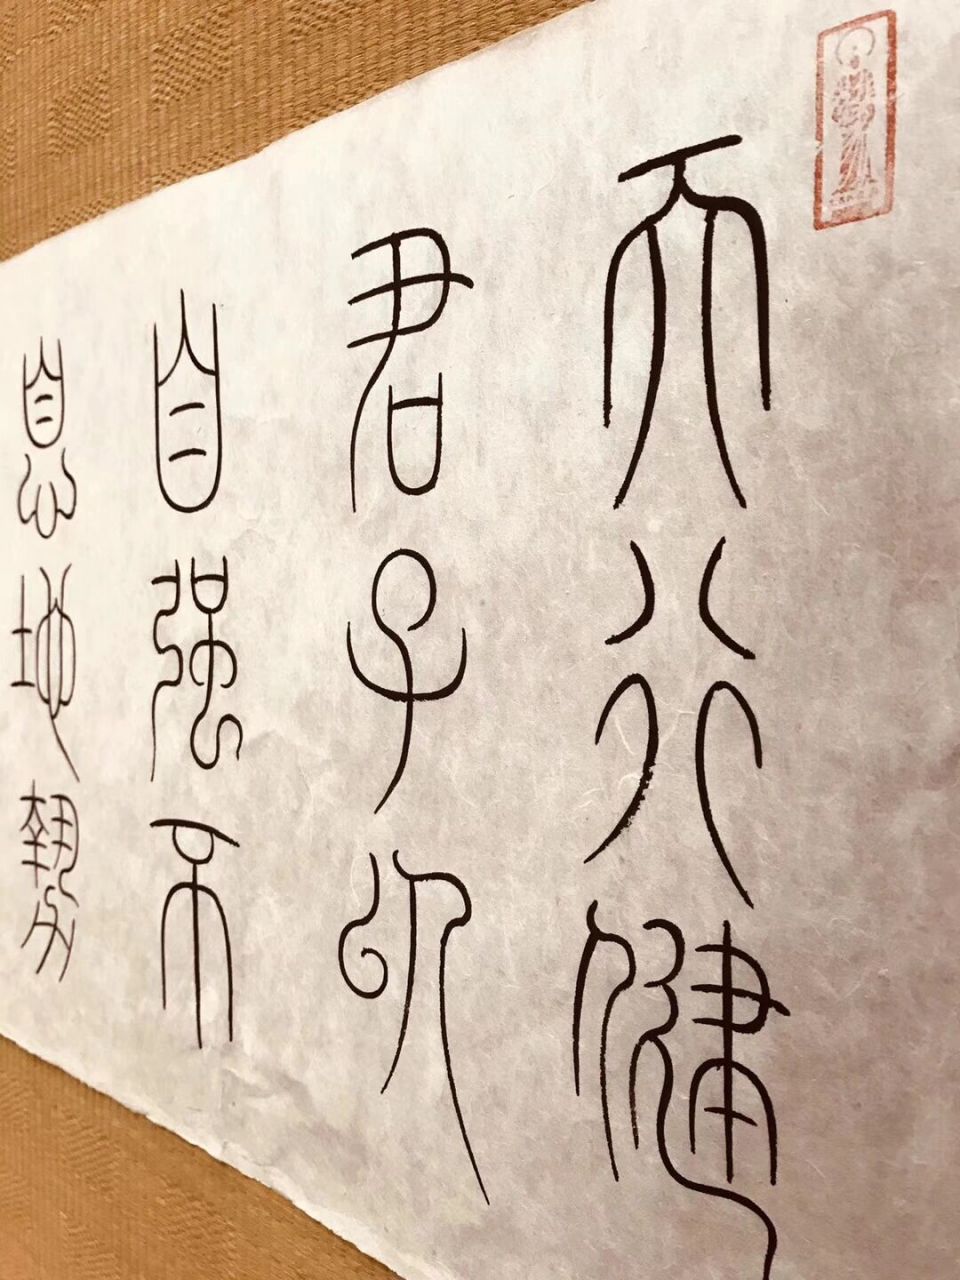 天行健
君子以
自強不
息地勢